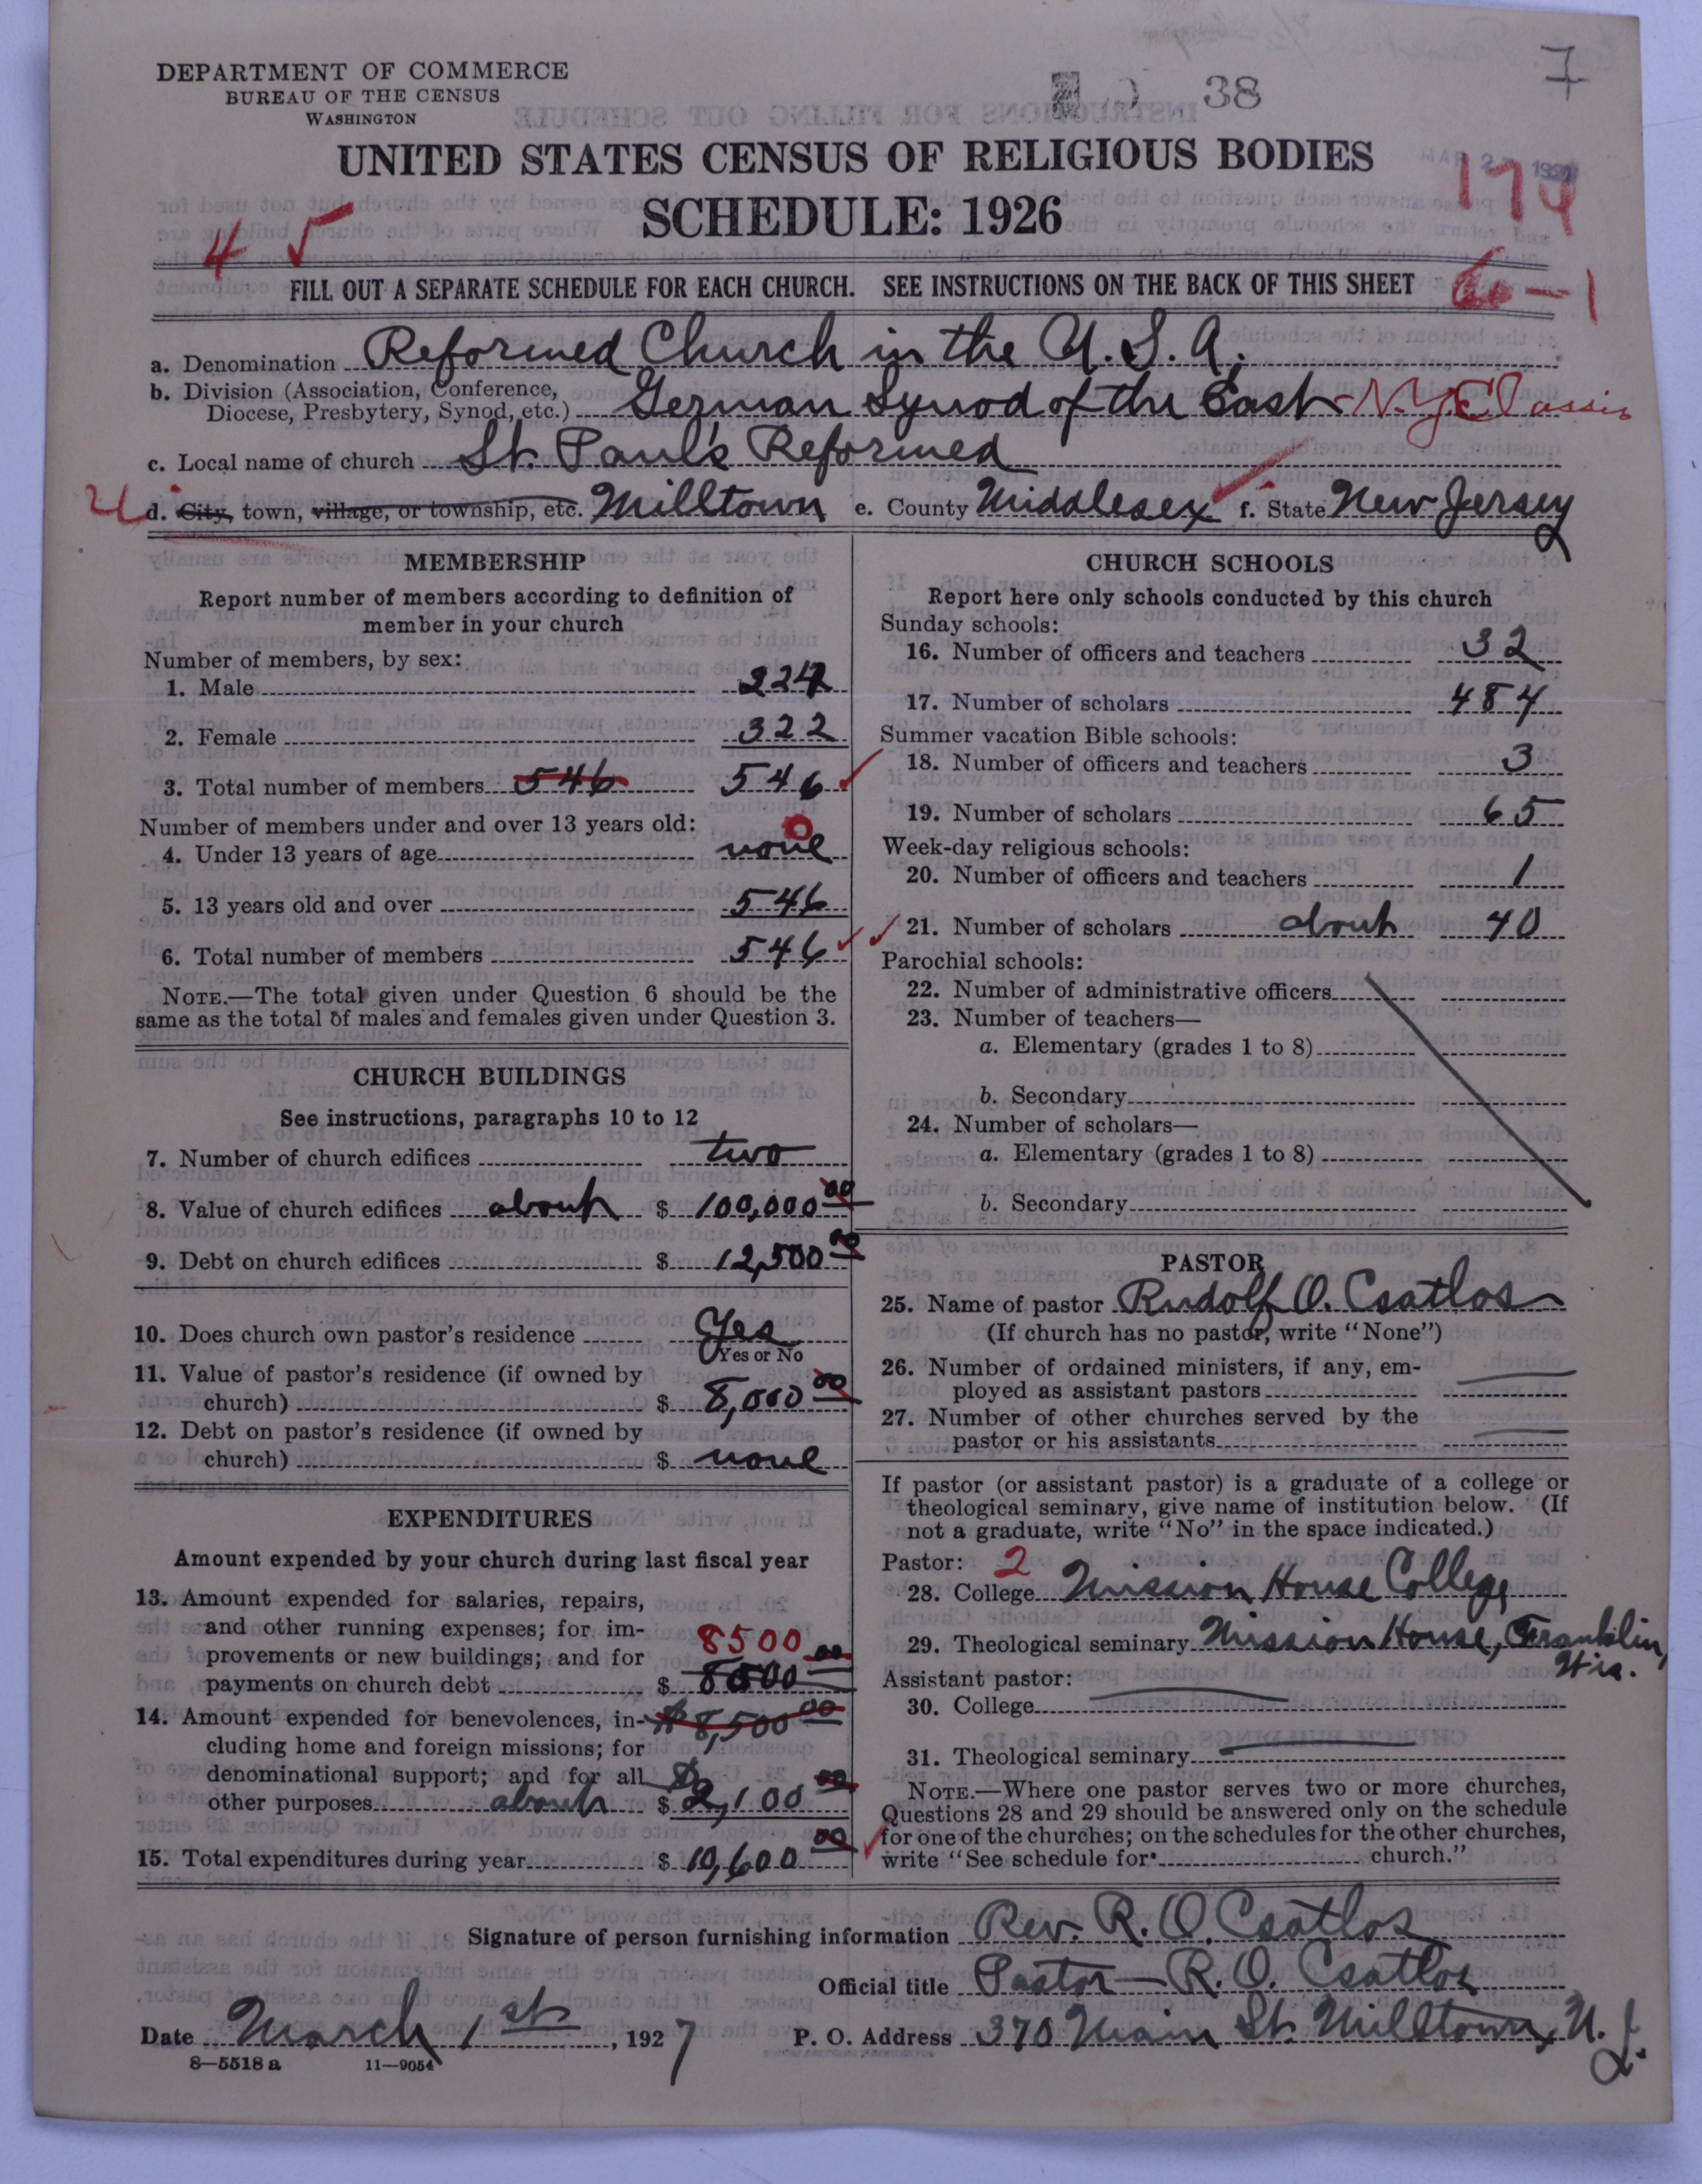 DEPARTMENT OF COMMERCE
BUREAU OF THE CENSUS
WASHINGTON
38
7
UNITED STATES CENSUS OF RELIGIOUS BODIES
SCHEDULE: 1926
174
4 5
FILL OUT A SEPARATE SCHEDULE FOR EACH CHURCH. SEE INSTRUCTIONS ON THE BACK OF THIS SHEET
60-1
a. Denomination Reformed Church in the U.S.A.
b. Division (Association, Conference,
Diocese, Presbytery, Synod, etc.) German Synod of the East - N.Y. Classis
c. Local name of church St. Paul's Reformed
d. City, town, village, or township, etc. Milltown e. County Middlesex f. State New Jersey
MEMBERSHIP
Report number of members according to definition of
member in your church
Number of members, by sex:
1. Male 224
2. Female 322
3. Total number of members 546 546
Number of members under and over 13 years old:
4. Under 13 years of age none 0
5. 13 years old and over 546
6. Total number of members 546
NOTE.—The total given under Question 6 should be the
same as the total of males and females given under Question 3.
CHURCH BUILDINGS
See instructions, paragraphs 10 to 12
7. Number of church edifices two
8. Value of church edifices about $ 100,000 00
9. Debt on church edifices $ 12,500 00
10. Does church own pastor's residence Yes
Yes or No
11. Value of pastor's residence (if owned by
church) $ 8,000 00
12. Debt on pastor's residence (if owned by
church) $ none
EXPENDITURES
Amount expended by your church during last fiscal year
13. Amount expended for salaries, repairs,
and other running expenses; for im-
provements or new buildings; and for 8500 00
payments on church debt $ 8500
14. Amount expended for benevolences, in- $8,500 00
cluding home and foreign missions; for
denominational support; and for all
other purposes about $ 2,100 00
15. Total expenditures during year $ 10,600 00
CHURCH SCHOOLS
Report here only schools conducted by this church
Sunday schools:
16. Number of officers and teachers 32
17. Number of scholars 484
Summer vacation Bible schools:
18. Number of officers and teachers 3
19. Number of scholars 65
Week-day religious schools:
20. Number of officers and teachers 1
21. Number of scholars about 40
Parochial schools:
22. Number of administrative officers
23. Number of teachers—
a. Elementary (grades 1 to 8)
b. Secondary
24. Number of scholars—
a. Elementary (grades 1 to 8)
b. Secondary
PASTOR
25. Name of pastor Rudolf O. Csatlos
(If church has no pastor, write "None")
26. Number of ordained ministers, if any, em-
ployed as assistant pastors
27. Number of other churches served by the
pastor or his assistants
If pastor (or assistant pastor) is a graduate of a college or
theological seminary, give name of institution below. (If
not a graduate, write "No" in the space indicated.)
Pastor: 2
28. College Mission House College
29. Theological seminary Mission House, Franklin,
Wis.
Assistant pastor:
30. College
31. Theological seminary
NOTE.—Where one pastor serves two or more churches,
Questions 28 and 29 should be answered only on the schedule
for one of the churches; on the schedules for the other churches,
write "See schedule for church."
Signature of person furnishing information Rev. R. O. Csatlos
Official title Pastor - R. O. Csatlos
Date March 1st, 1927 P. O. Address 370 Main St. Milltown, N. J.
8—5518 a 11—9054